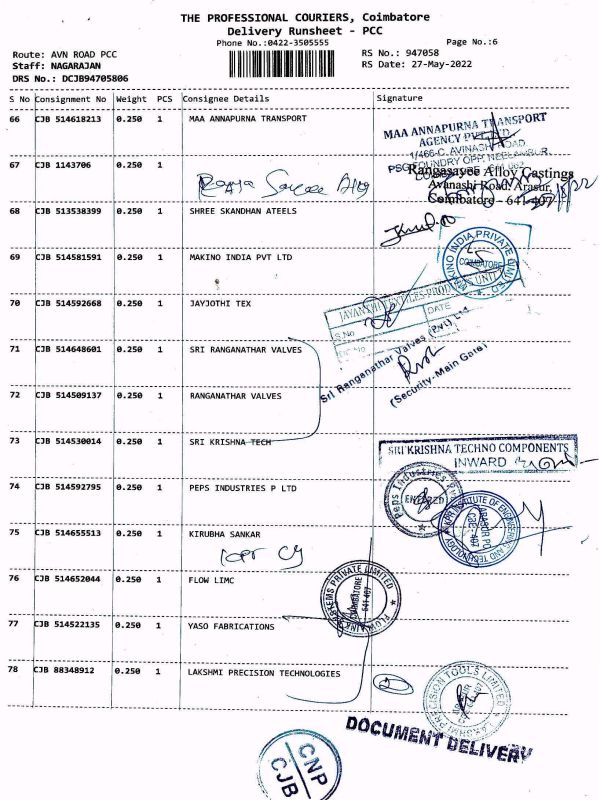 THE PROFESSIONAL COURIERS, Coimbatore
Delivery Runsheet - PCC
Phone No.:0422-3505555
Page No.:6
Route: AVN ROAD PCC
RS No.: 947058
Staff: NAGARAJAN
RS Date: 27-May-2022
DRS No.: DCJB94705806
S No Consignment No Weight PCS Consignee Details Signature
66 CJB 514618213 0.250 1 MAA ANNAPURNA TRANSPORT
MAA ANNAPURNA TRANSPORT
AGENCY PVT LTD
1/466-C, AVINASHI ROAD
PSG FOUNDRY OPP. NEELAMBUR
67 CJB 1143706 0.250 1
Rangasayee Alloy Castings
Avanashi Road, Arasur,
Coimbatore - 641 407
68 CJB 513538399 0.250 1 SHREE SKANDHAN ATEELS
69 CJB 514581591 0.250 1 MAKINO INDIA PVT LTD
MAKINO INDIA PRIVATE LIMITED
COIMBATORE
70 CJB 514592668 0.250 1 JAYJOTHI TEX
S.No
DATE
71 CJB 514648601 0.250 1 SRI RANGANATHAR VALVES
Sri Ranganathar Valves (Pvt) Ltd
(Security-Main Gate)
72 CJB 514509137 0.250 1 RANGANATHAR VALVES
73 CJB 514530014 0.250 1 SRI KRISHNA TECH
SRI KRISHNA TECHNO COMPONENTS
INWARD
74 CJB 514592795 0.250 1 PEPS INDUSTRIES P LTD
Peps Industries
ENTERED
75 CJB 514655513 0.250 1 KIRUBHA SANKAR
INSTITUTE OF ENGINEERING AND TECHNOLOGY
76 CJB 514652044 0.250 1 FLOW LIMC
PRIVATE LIMITED
COIMBATORE
641 407
77 CJB 514522135 0.250 1 YASO FABRICATIONS
78 CJB 88348912 0.250 1 LAKSHMI PRECISION TECHNOLOGIES
2
LAKSHMI PRECISION TOOLS LIMITED
DOCUMENT DELIVERY
CNP
CJB